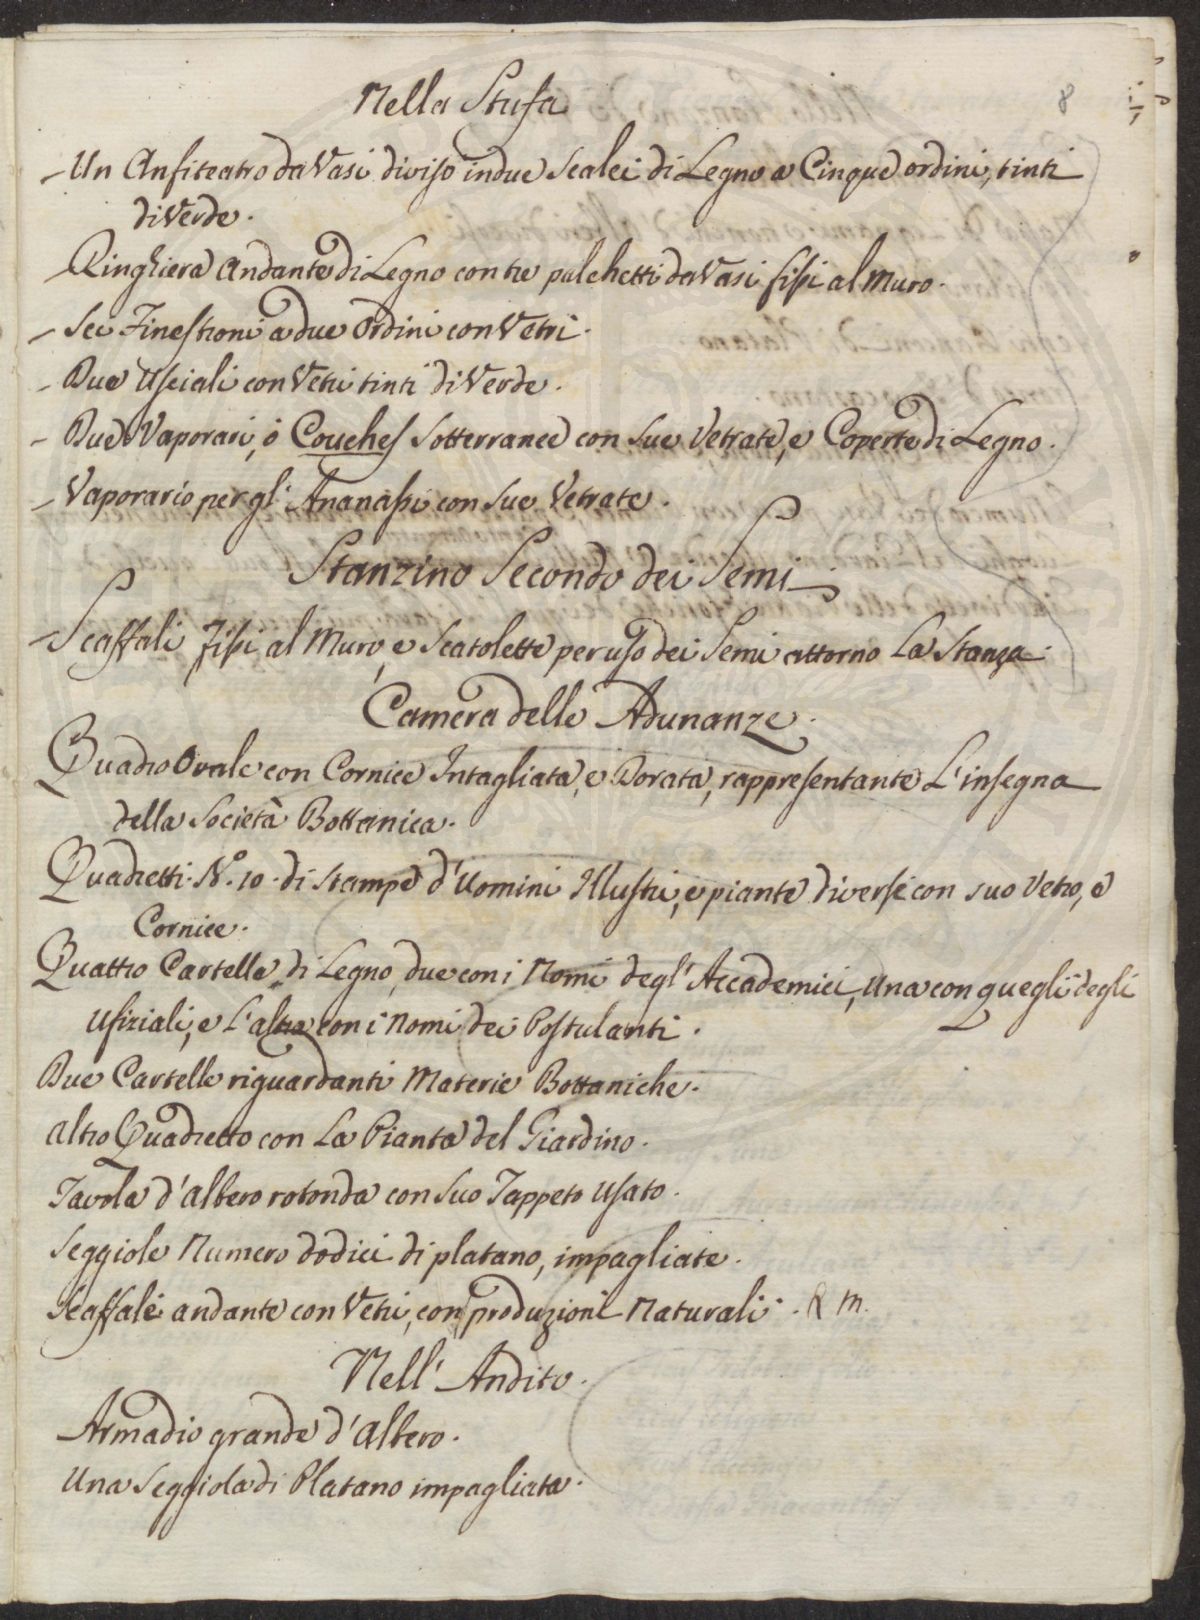 8
Nella Stufa
- Un Anfiteatro da Vasi diviso in due Scalei di Legno a Cinque ordini, tinti
di Verde.
- Ringhiera andante di Legno con tre palchetti da Vasi fissi al Muro.
- Sei Finestroni a due Ordini con Vetri.
- Due Usciali con Vetri tinti di Verde.
- Due Vaporari, ó Couches Sotterranee con Sue Vetrate, e Coperte di Legno.
- Vaporario per gl'Ananassi con Sue Vetrate.
Stanzino Secondo dei Semi
- Scaffali fissi al Muro, e Scatolette per uso dei Semi attorno La Stanza.
Camera delle Adunanze.
Quadro Ovale con Cornice Intagliata, e Dorata, rappresentante L'insegna
della Società Bottanica.
Quadretti N.o 10. di Stampe d'Uomini Illustri, e piante diverse con suo Vetro, e
Cornice.
Quattro Cartelle di Legno, due con i Nomi degl'Accademici, Una con quegli degli
Ufiziali, e L'altra con i Nomi dei Postulanti.
Due Cartelle riguardanti Materie Bottaniche.
Altro Quadretto con La Pianta del Giardino.
Tavola d'albero rotonda con Suo Tappeto Usato.
Seggiole Numero dodici di platano, impagliate.
Scaffale andante con Vetri, con produzioni Naturali. R m.
Nell'Andito.
Armadio grande d'Albero.
Una Seggiola di Platano impagliata.